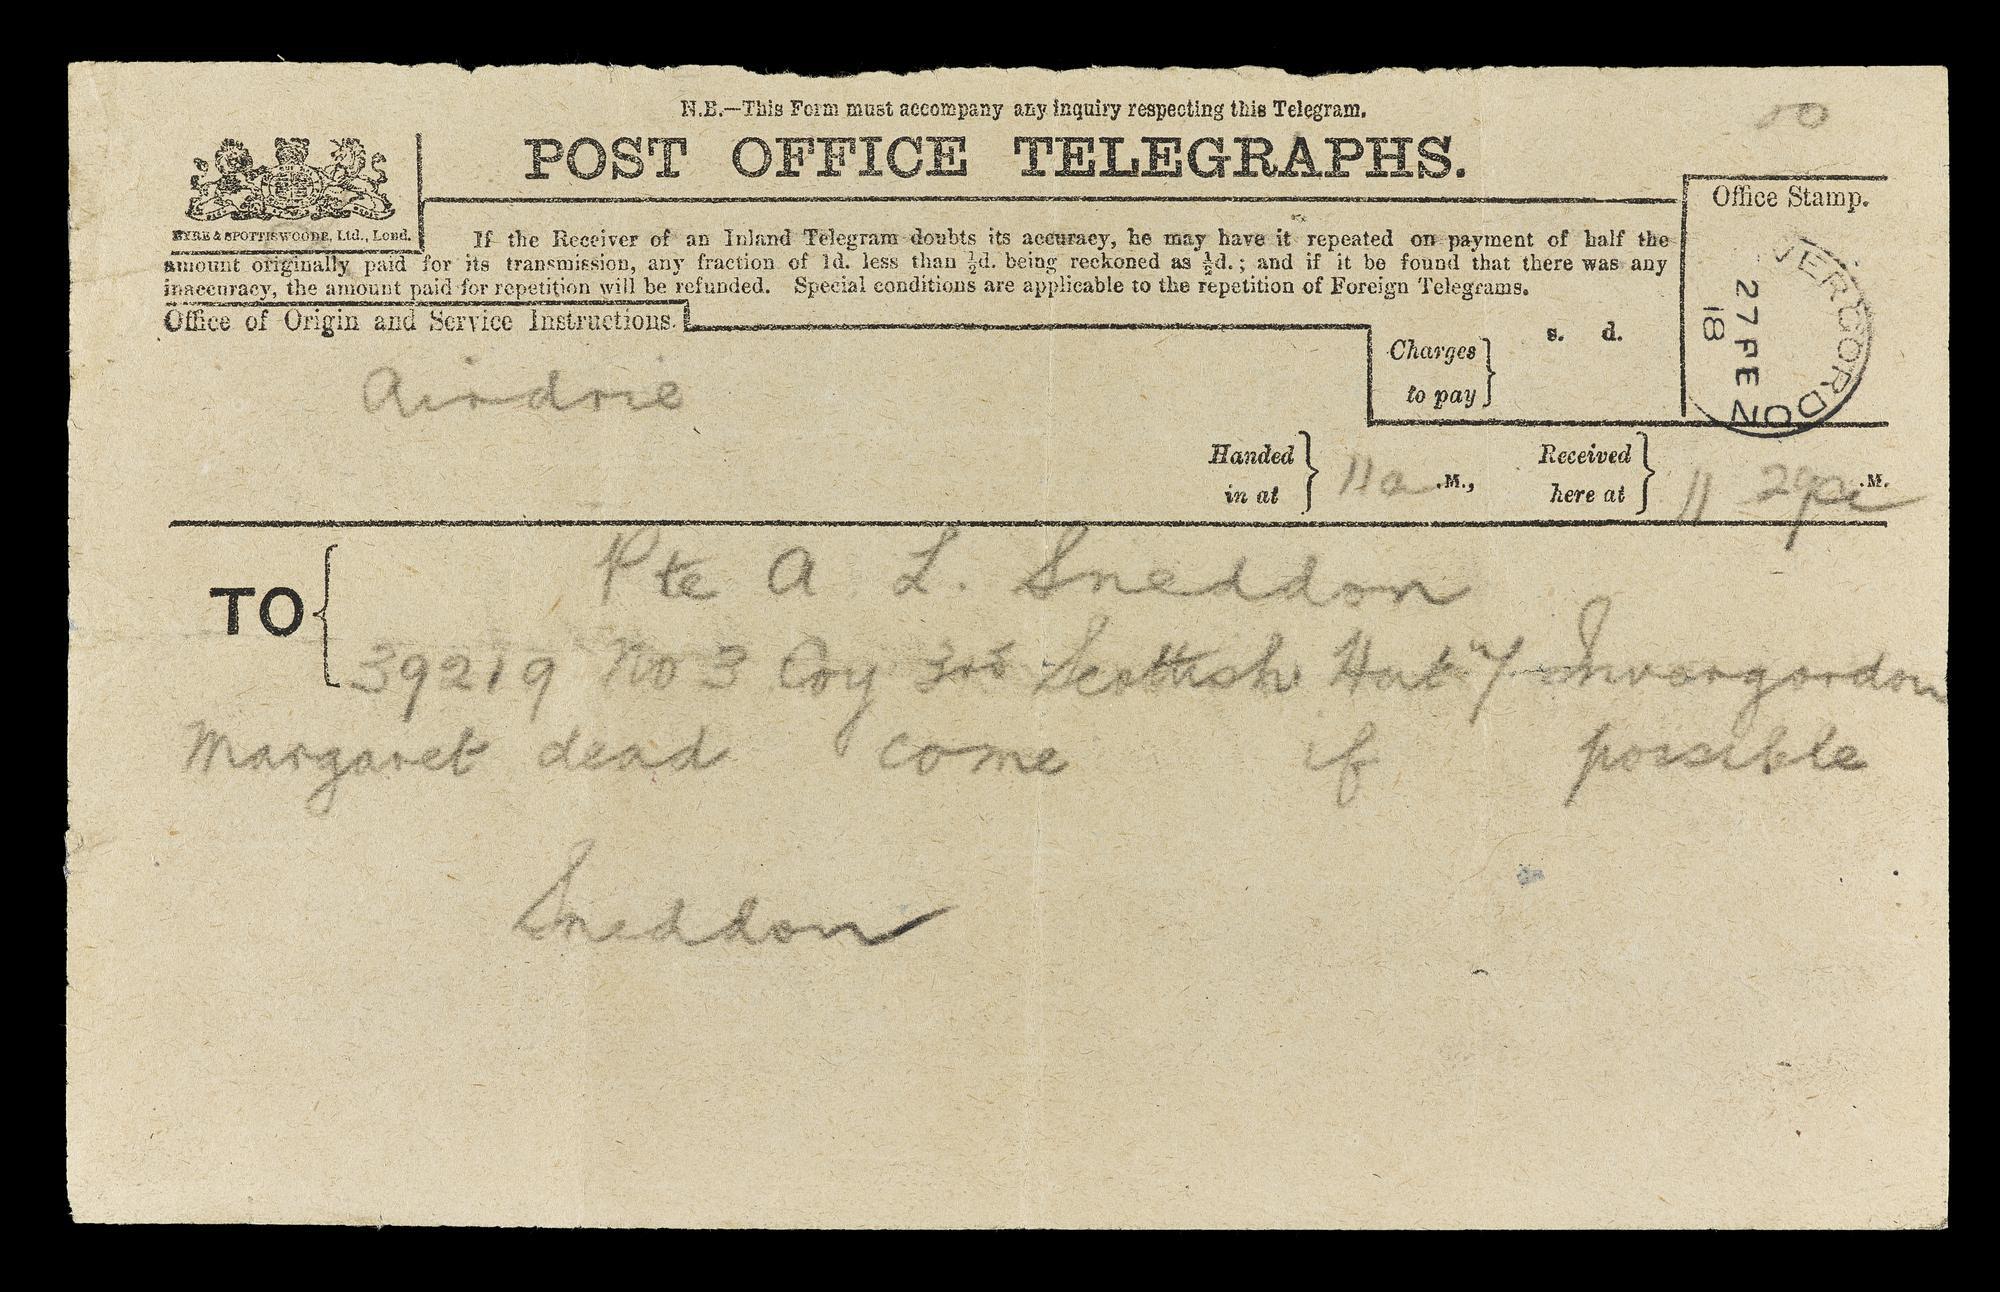 N.B.—This Form must accompany any inquiry respecting this Telegram.
POST OFFICE TELEGRAPHS.
EYRE & SPOTTISWOODE, Ltd., Lond.
Office Stamp.
If the Receiver of an Inland Telegram doubts its accuracy, he may have it repeated on payment of half the
amount originally paid for its transmission, any fraction of 1d. less than ½d. being reckoned as ½d.; and if it be found that there was any
inaccuracy, the amount paid for repetition will be refunded. Special conditions are applicable to the repetition of Foreign Telegrams.
VERGORDON
27 FE
18
Office of Origin and Service Instructions.
Airdrie
Charges to pay
s. d.
Handed in at 11a .M.,
Received here at 11 .M.
TO
Pte A L. Sneddon
39219 No 3 Coy 3rd Scottish Hut Invergordon
Margaret dead come if possible
Sneddon